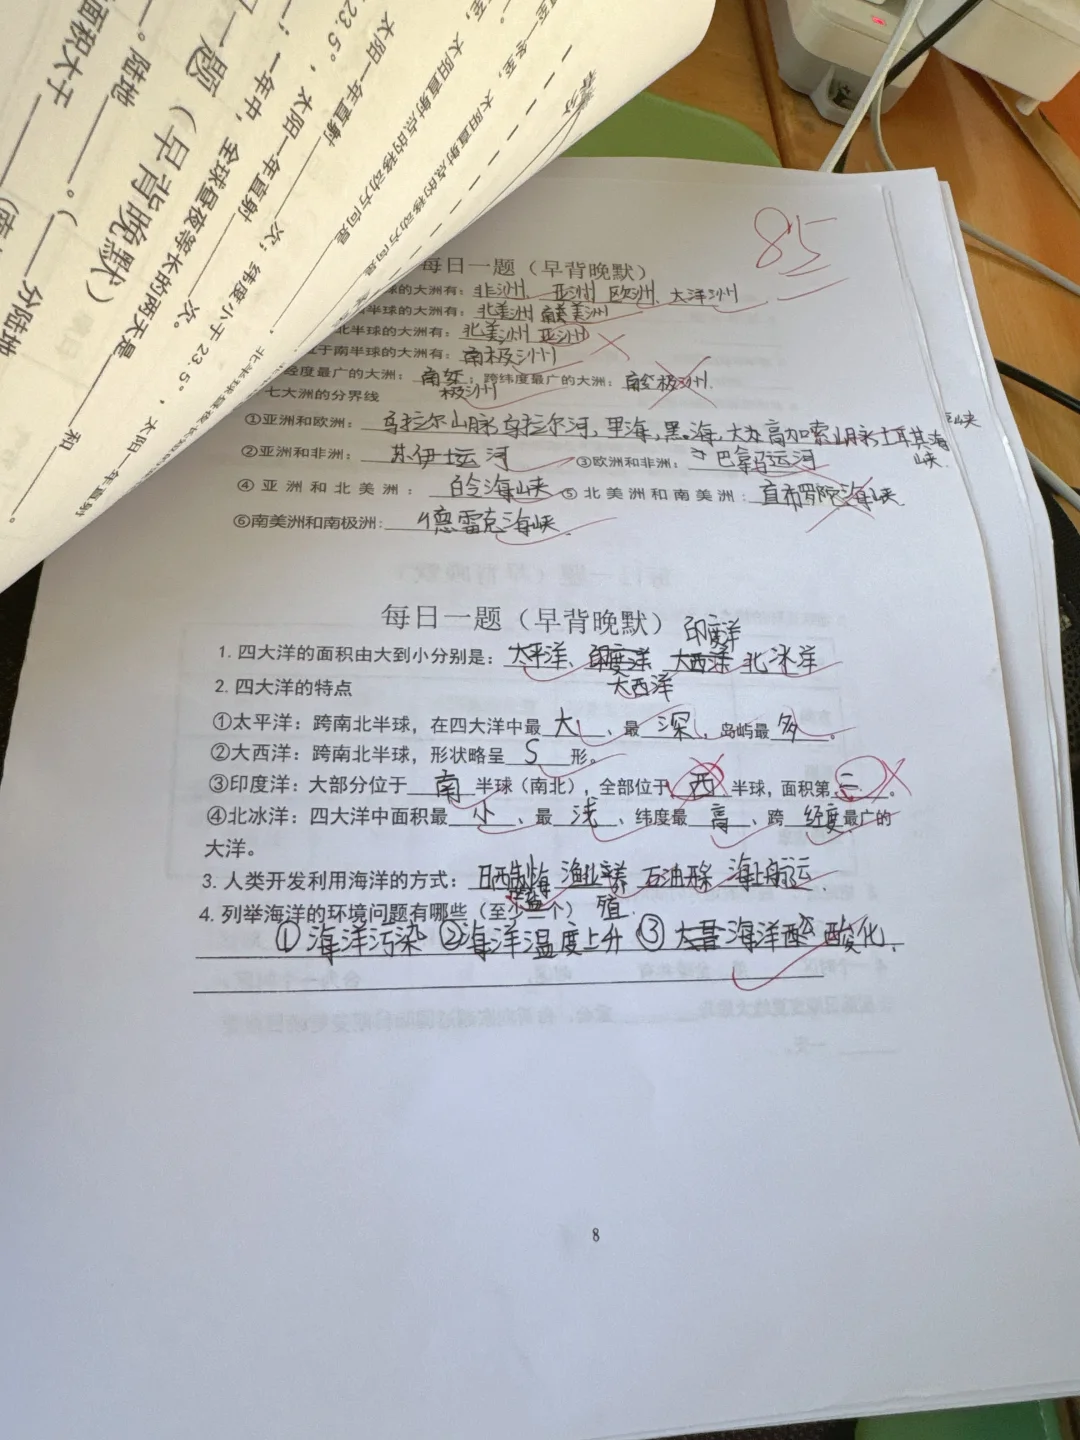 面积大于
。陆地
。(
分陆地
一题（早背晚默）
i. 一年中，全球昼夜等长的两天是
和
。
23.5°，太阳一年直射
次；纬度小于 23.5°，太阳一年直射
次。
太阳直射点的移动方向是
太阳直射点的移动方向是
85
每日一题（早背晚默）
球的大洲有：非洲、亚洲 欧洲、大洋洲
半球的大洲有：北美洲 南美洲
北半球的大洲有：北美洲 亚洲
于南半球的大洲有：南极洲
经度最广的大洲：南极洲；跨纬度最广的大洲：南极洲.
七大洲的分界线
①亚洲和欧洲：乌拉尔山脉,乌拉尔河,里海,黑海,大高加索山脉,土耳其海峡.
②亚洲和非洲：苏伊士运河 ③欧洲和非洲：巴拿马运河
④亚洲和北美洲：白令海峡 ⑤北美洲和南美洲：直布罗陀海峡.
⑥南美洲和南极洲：德雷克海峡.
每日一题（早背晚默）
印度洋
1. 四大洋的面积由大到小分别是：太平洋、印度洋 大西洋 北冰洋
大西洋
2. 四大洋的特点
①太平洋：跨南北半球，在四大洋中最大、最深，岛屿最多。
②大西洋：跨南北半球，形状略呈S形。
③印度洋：大部分位于南半球（南北），全部位于西半球，面积第三。
④北冰洋：四大洋中面积最小、最浅、纬度最高、跨经度最广的
大洋。
3. 人类开发利用海洋的方式：晒海制盐 渔业养殖 石油开采 海上航运.
4. 列举海洋的环境问题有哪些（至少三个）
①海洋污染 ②海洋温度上升 ③海洋酸化.
8